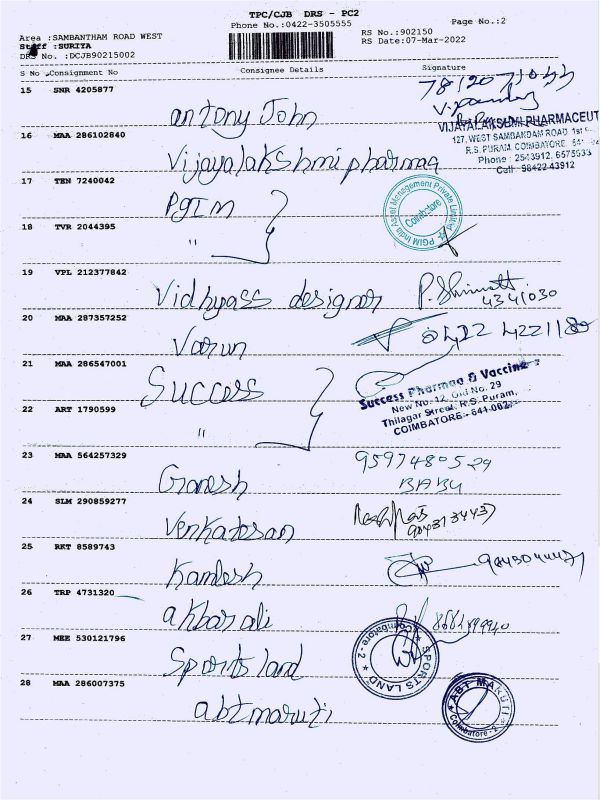 TPC/CJB DRS - PC2
Phone No.:0422-3505555
Page No.:2
Area :SAMBANTHAM ROAD WEST
RS No.:902150
Staff :SURIYA
RS Date:07-Mar-2022
DRS No. :DCJB90215002
S No Consignment No Consignee Details Signature
15 SNR 4205877
antony John
16 MAA 286102840
VIJAYALAKSHMI PHARMACEUT
127, WEST SAMBANDAM ROAD
R.S. PURAM, COIMBATORE
Phone : 2543912, 6575933
Cell : 98422 43912
Vijayalakshmi pharmaq
17 TEN 7240042
PGIM
PGIM India Asset Management Private Limited
Coimbatore
18 TVR 2044395
"
19 VPL 212377842
Vidhyass designer
4341030
20 MAA 287357252
Varun
0422 4221180
21 MAA 286547001
Success
Success Pharmaa & Vaccines
New No. 12, Old No. 29
Thilagar Street, R.S. Puram,
COIMBATORE - 641 002
22 ART 1790599
"
23 MAA 564257329
Ganesh
9597480529
BABU
24 SLM 290859277
Venkatesan
25 RKT 8589743
Kamlesh
26 TRP 4731320
akbar ali
27 MEE 530121796
Sports land
SPORTS LAND
Coimbatore - 2
28 MAA 286007375
abt maruti
ABT MARUTI
Coimbatore - 2